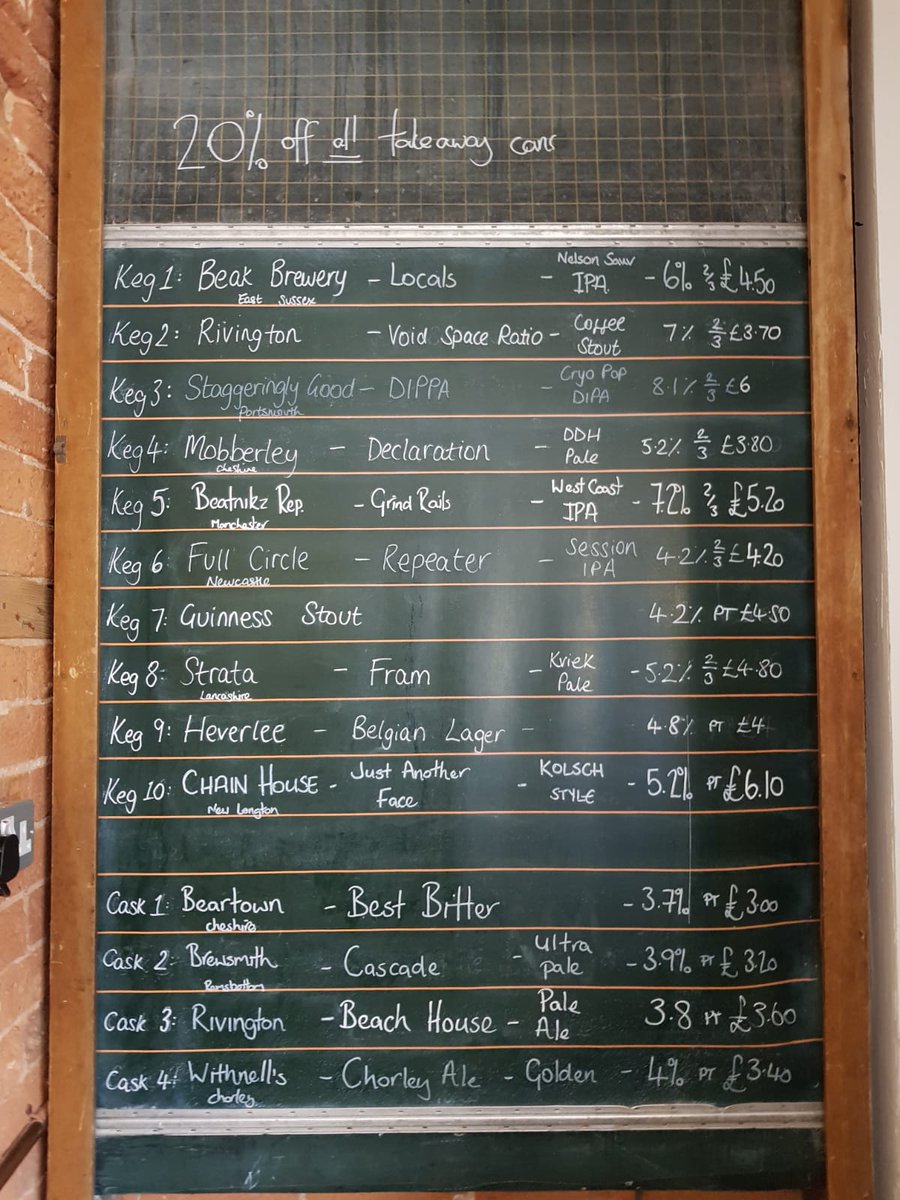 20% off all takeaway cans
Keg 1: Beak Brewery - Locals - Nelson Sauv IPA - 6% 2/3 £4.50
East Sussex
Keg 2: Rivington - Void Space Ratio - Coffee Stout 7% 2/3 £3.70
Keg 3: Staggeringly Good - DIPPA - Cryo Pop DIPA 8.1% 2/3 £6
Portsmouth
Keg 4: Mobberley - Declaration - DDH Pale 5.2% 2/3 £3.80
Cheshire
Keg 5: Beatnikz Rep. - Grind Rails - West Coast IPA - 7.2% 2/3 £5.20
Manchester
Keg 6: Full Circle - Repeater - Session IPA 4.2% 2/3 £4.20
Newcastle
Keg 7: Guinness Stout 4.2% PT £4.50
Keg 8: Strata - Fram - Kviek Pale - 5.2% 2/3 £4.80
Lancashire
Keg 9: Heverlee - Belgian Lager - 4.8% PT £4
Keg 10: CHAIN HOUSE - Just Another Face - KOLSCH STYLE - 5.2% PT £6.10
New Longton
Cask 1: Beartown - Best Bitter - 3.7% PT £3.00
cheshire
Cask 2: Brewsmith - Cascade - Ultra pale - 3.9% PT £3.20
Ramsbottom
Cask 3: Rivington - Beach House - Pale Ale 3.8 PT £3.60
Cask 4: Withnell's - Chorley Ale - Golden - 4% PT £3.40
chorley